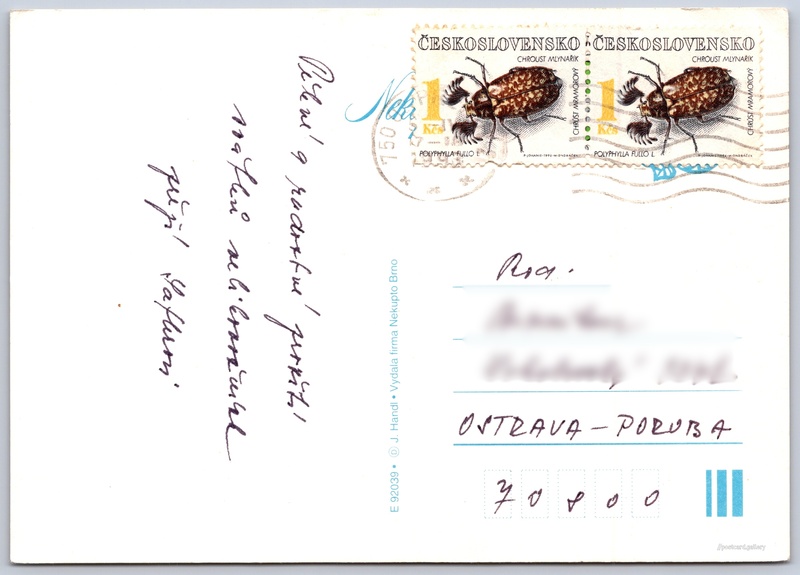 Pěkné a radostné prožití
svátků velikonočních
přejí
ČESKOSLOVENSKO
CHROUST MLYNAŘÍK
CHRÚST MRAMOROVÝ
1
Kčs
POLYPHYLLA FULLO L.
ČESKOSLOVENSKO
CHROUST MLYNAŘÍK
CHRÚST MRAMOROVÝ
1
Kčs
POLYPHYLLA FULLO L.
750
E 92039 • J. Handl • Vydala firma Nekupto Brno
Rod.
OSTRAVA – PORUBA
70800
//postcard.gallery